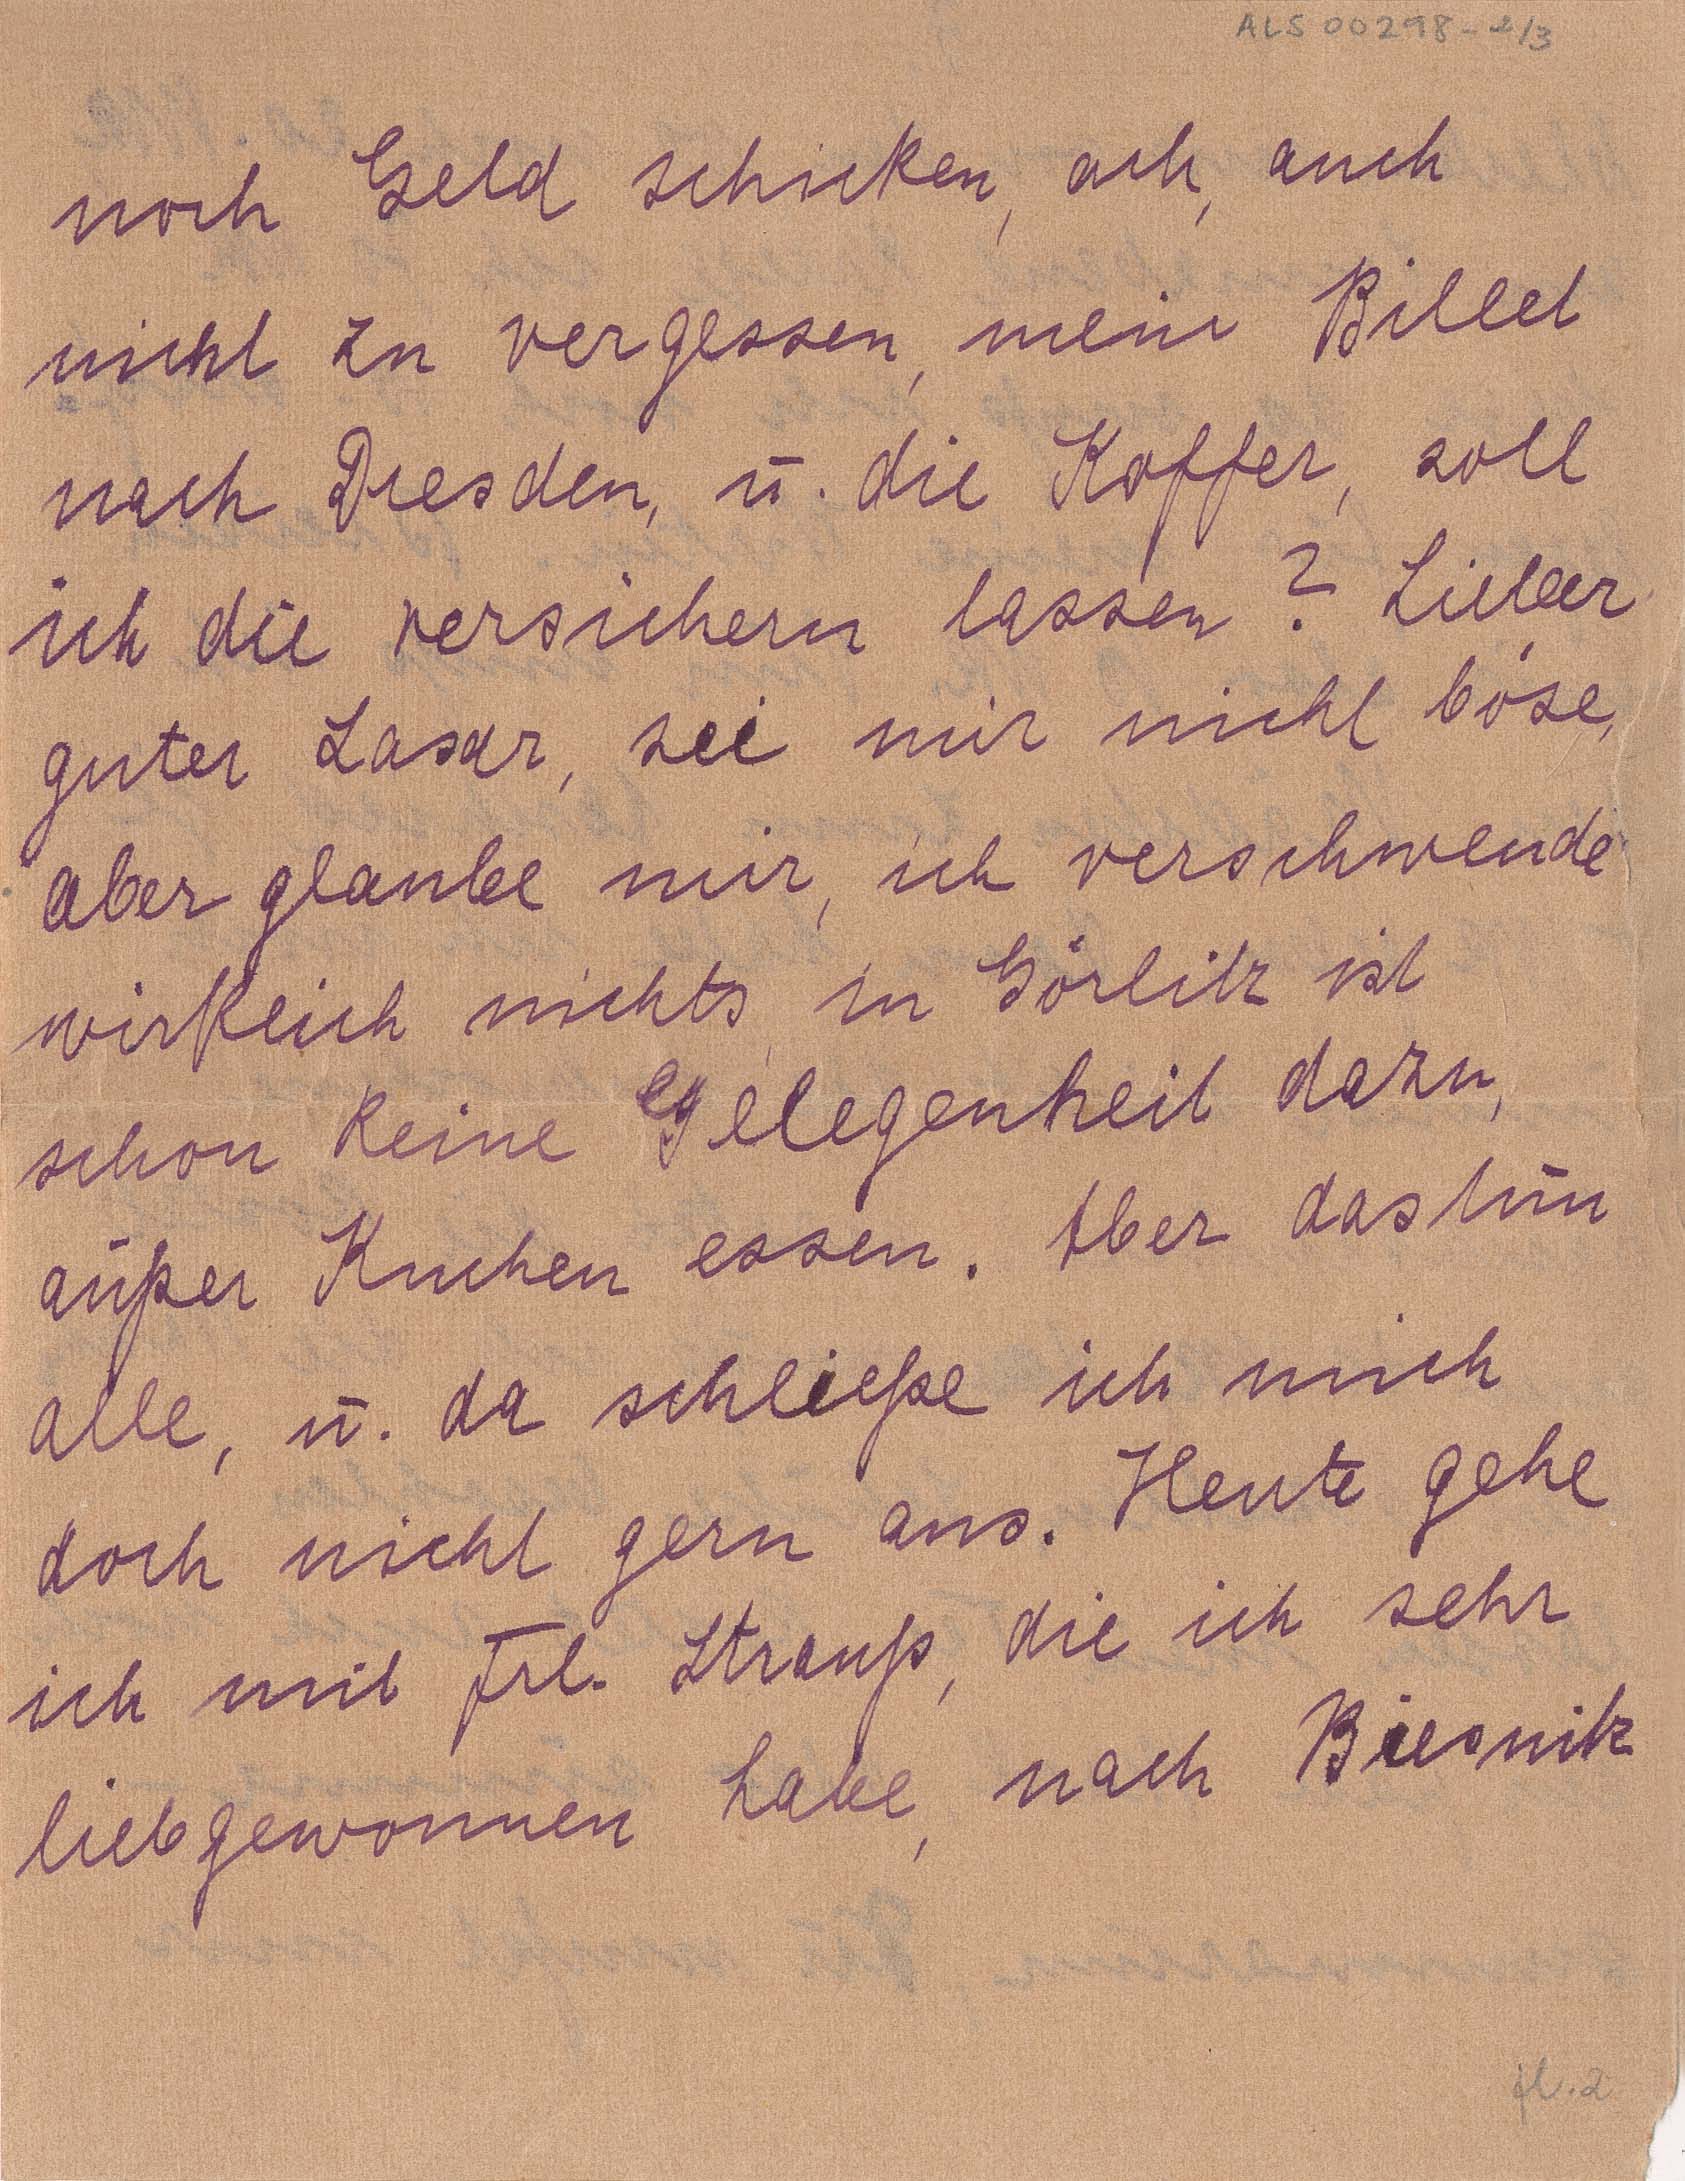 ALS 00298-2/3
noch Geld schicken, ach, auch
nicht zu vergessen, mein Billet
nach Dresden, u. die Koffer, soll
ich die versichern lassen? Lieber,
guter Lasar, sei mir nicht böse,
aber glaube mir, ich verschwende
wirklich nichts, in Görlitz ist
schon keine Gelegenheit dazu,
außer Kuchen essen. Aber das tun
alle, u. da schließe ich mich
doch nicht gern aus. Heute gehe
ich mit Frl. Strauß, die ich sehr
liebgewonnen habe, nach Biesnitz
fl.2